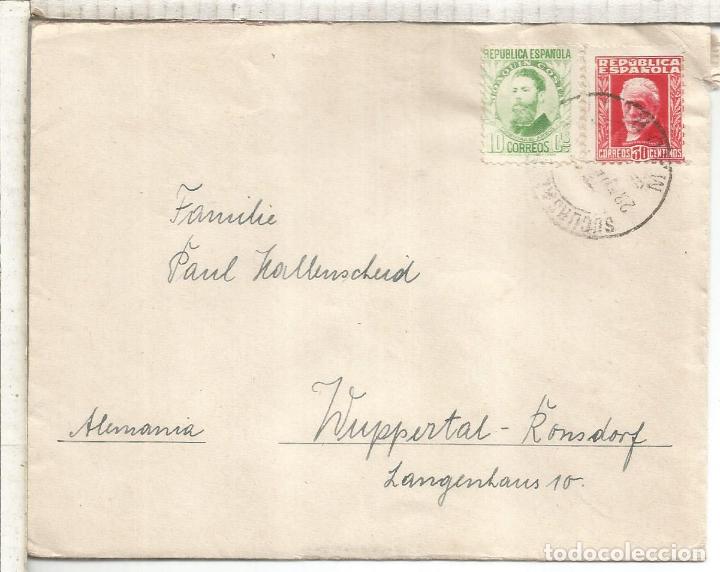 REPÚBLICA ESPAÑOLA
JOAQUIN COSTA
10 CORREOS Cts
REPÚBLICA
ESPAÑOLA
CORREOS 30 CENTIMOS
SUCURSAL
Familie
Paul Hallenscheid
Alemania
Wuppertal-Ronsdorf
Langenhaus 10.
todocoleccion